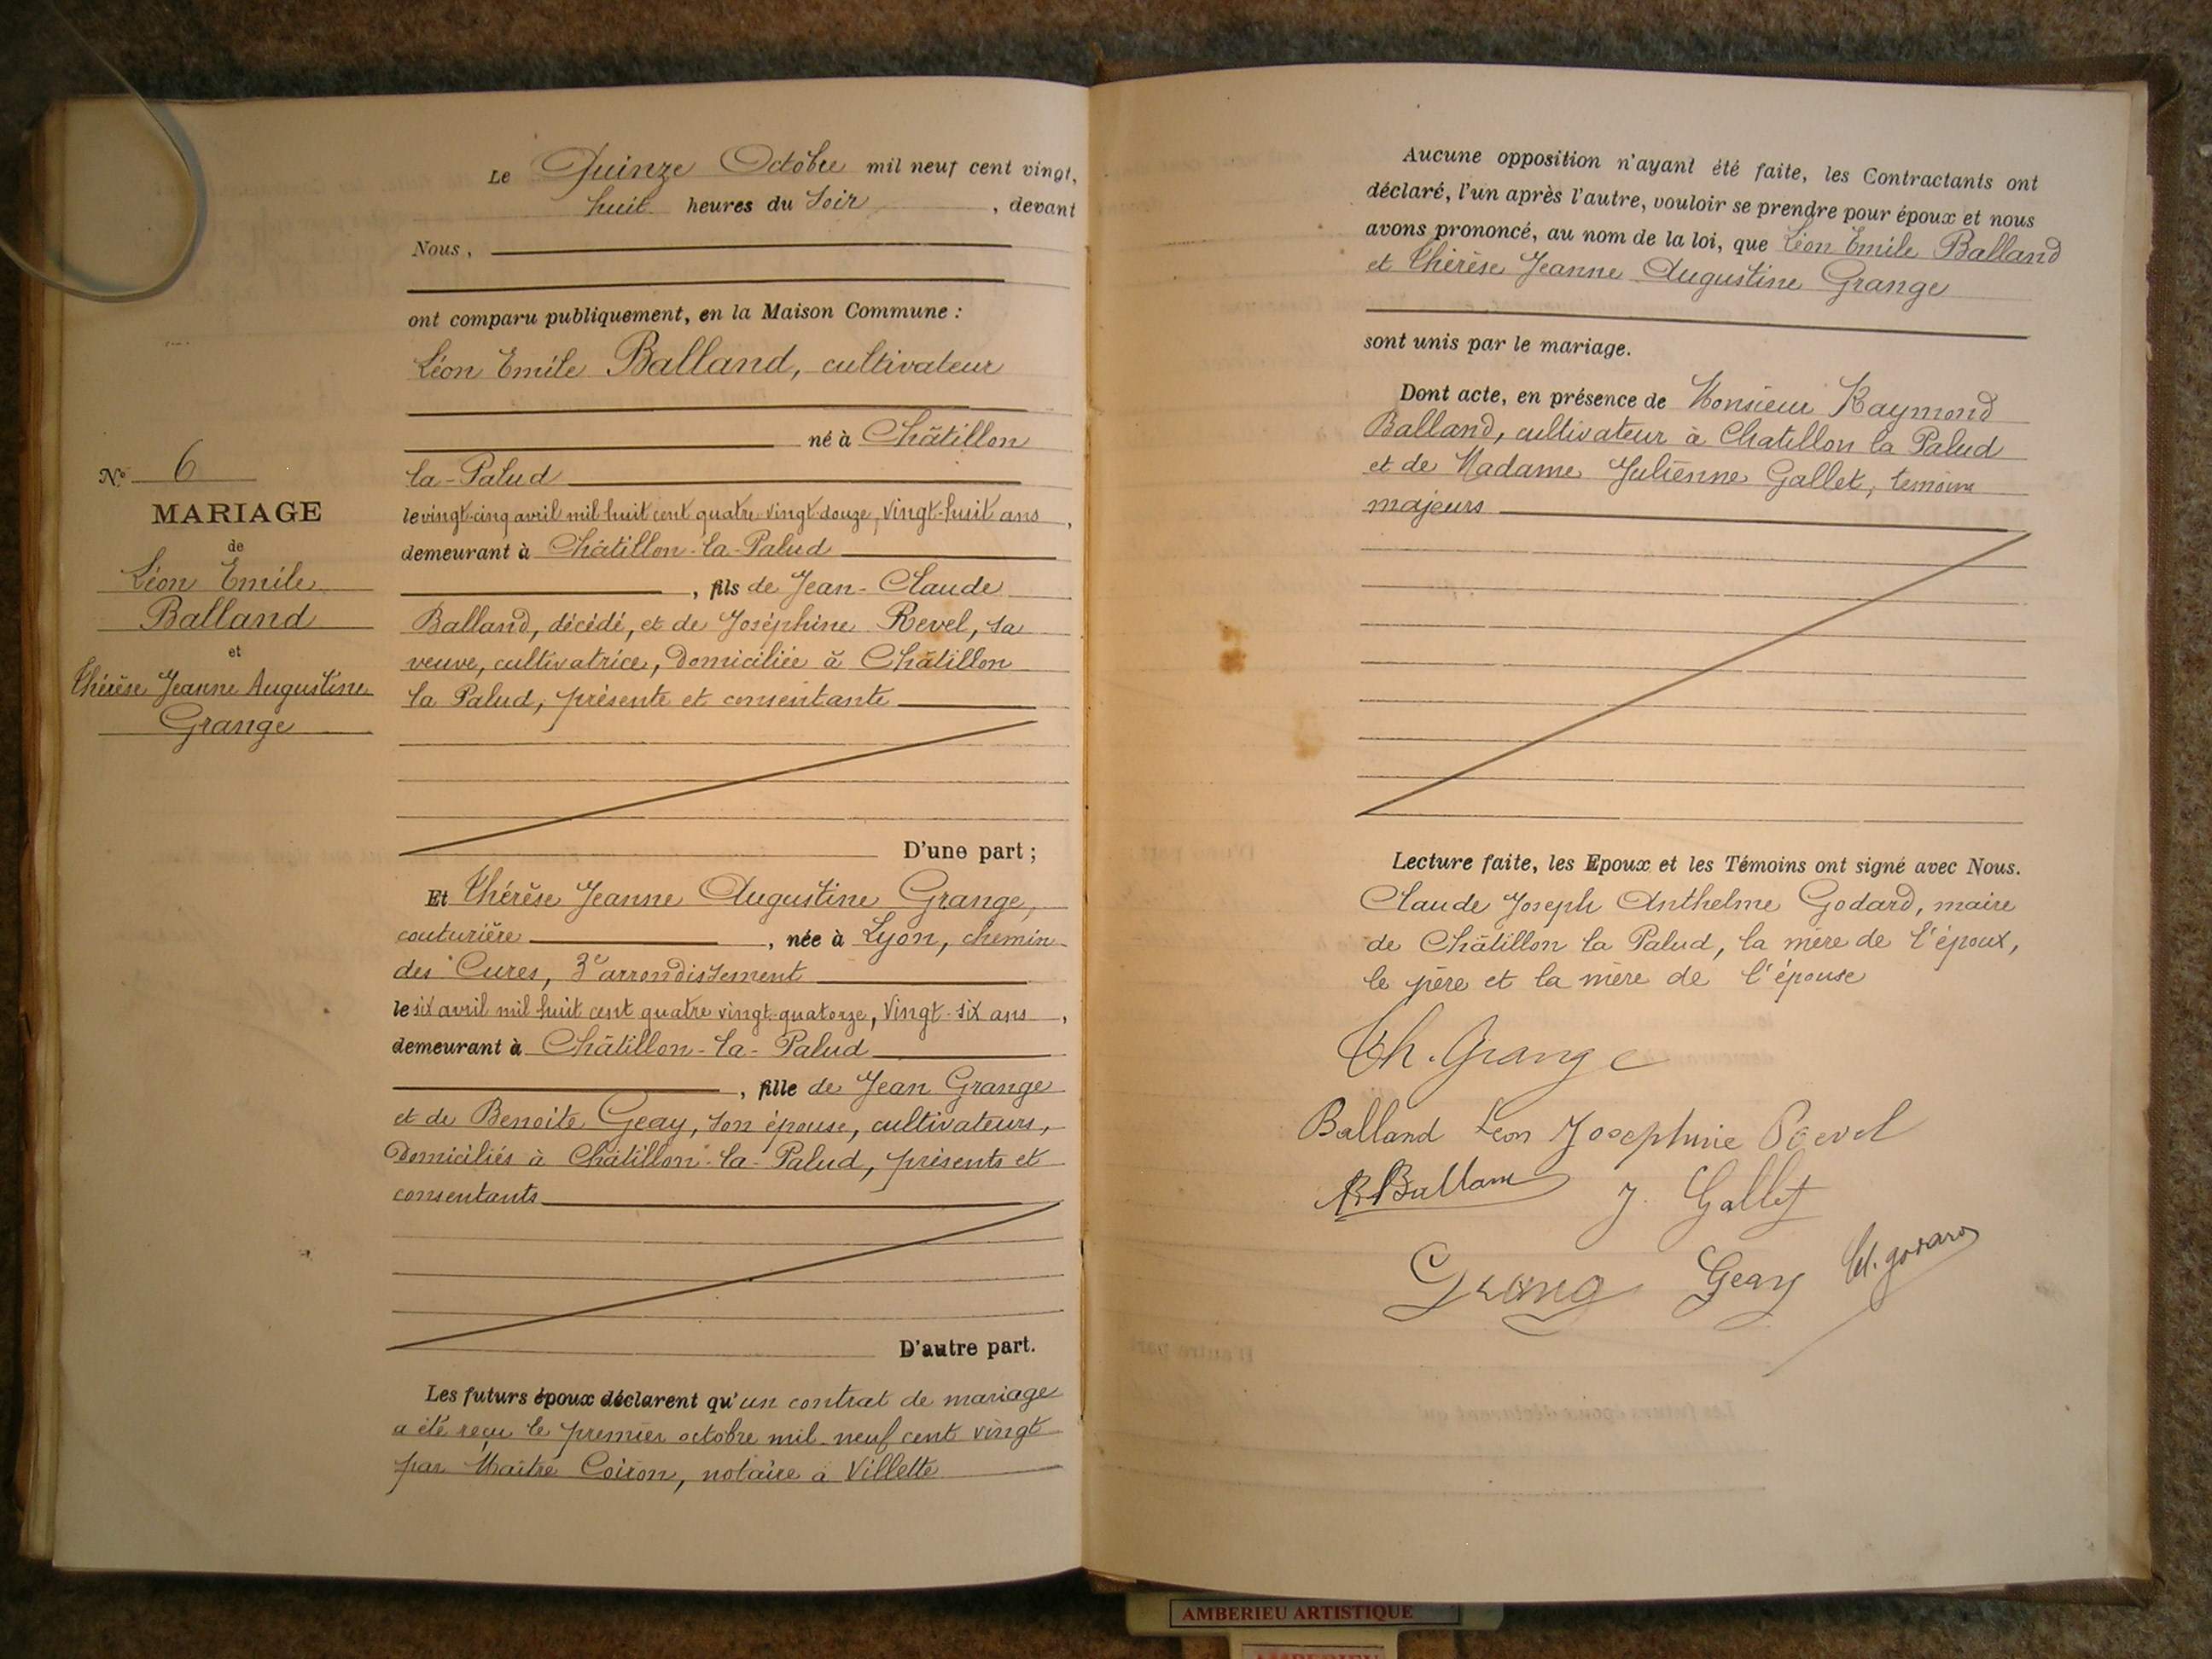 N° 6
MARIAGE
de
Léon Emile
Balland
et
Thérèse Jeanne Augustine
Grange
Le Quinze Octobre mil neuf cent vingt,
huit heures du soir, devant
Nous,
ont comparu publiquement, en la Maison Commune :
Léon Emile Balland, cultivateur
né à Châtillon
la-Palud
le vingt-cinq avril mil huit cent quatre-vingt-douze, vingt-huit ans,
demeurant à Châtillon-la-Palud
, fils de Jean-Claude
Balland, décédé, et de Joséphine Revel, sa
veuve, cultivatrice, domiciliée à Châtillon
la Palud, présente et consentante
D'une part ;
Et Thérèse Jeanne Augustine Grange,
couturière, née à Lyon, chemin
des Cures, 3e arrondissement
le six avril mil huit cent quatre vingt-quatorze, vingt-six ans,
demeurant à Châtillon-la-Palud
, fille de Jean Grange
et de Benoite Geay, son épouse, cultivateurs,
domiciliés à Châtillon-la-Palud, présents et
consentants
D'autre part.
Les futurs époux déclarent qu'un contrat de mariage
a été reçu le premier octobre mil neuf cent vingt
par Maître Coiron, notaire à Villette
Aucune opposition n'ayant été faite, les Contractants ont
déclaré, l'un après l'autre, vouloir se prendre pour époux et nous
avons prononcé, au nom de la loi, que Léon Emile Balland
et Thérèse Jeanne Augustine Grange
sont unis par le mariage.
Dont acte, en présence de Monsieur Raymond
Balland, cultivateur à Chatillon la Palud
et de Madame Julienne Gallet, témoins
majeurs
Lecture faite, les Epoux et les Témoins ont signé avec Nous.
Claude Joseph Anthelme Godard, maire
de Châtillon la Palud, la mère de l'époux,
le père et la mère de l'épouse
Th. Grange
Balland Léon Josephine Revel
R Balland J. Gallet
Grange Geay Cl. godard
AMBERIEU ARTISTIQUE
AMBERIEU